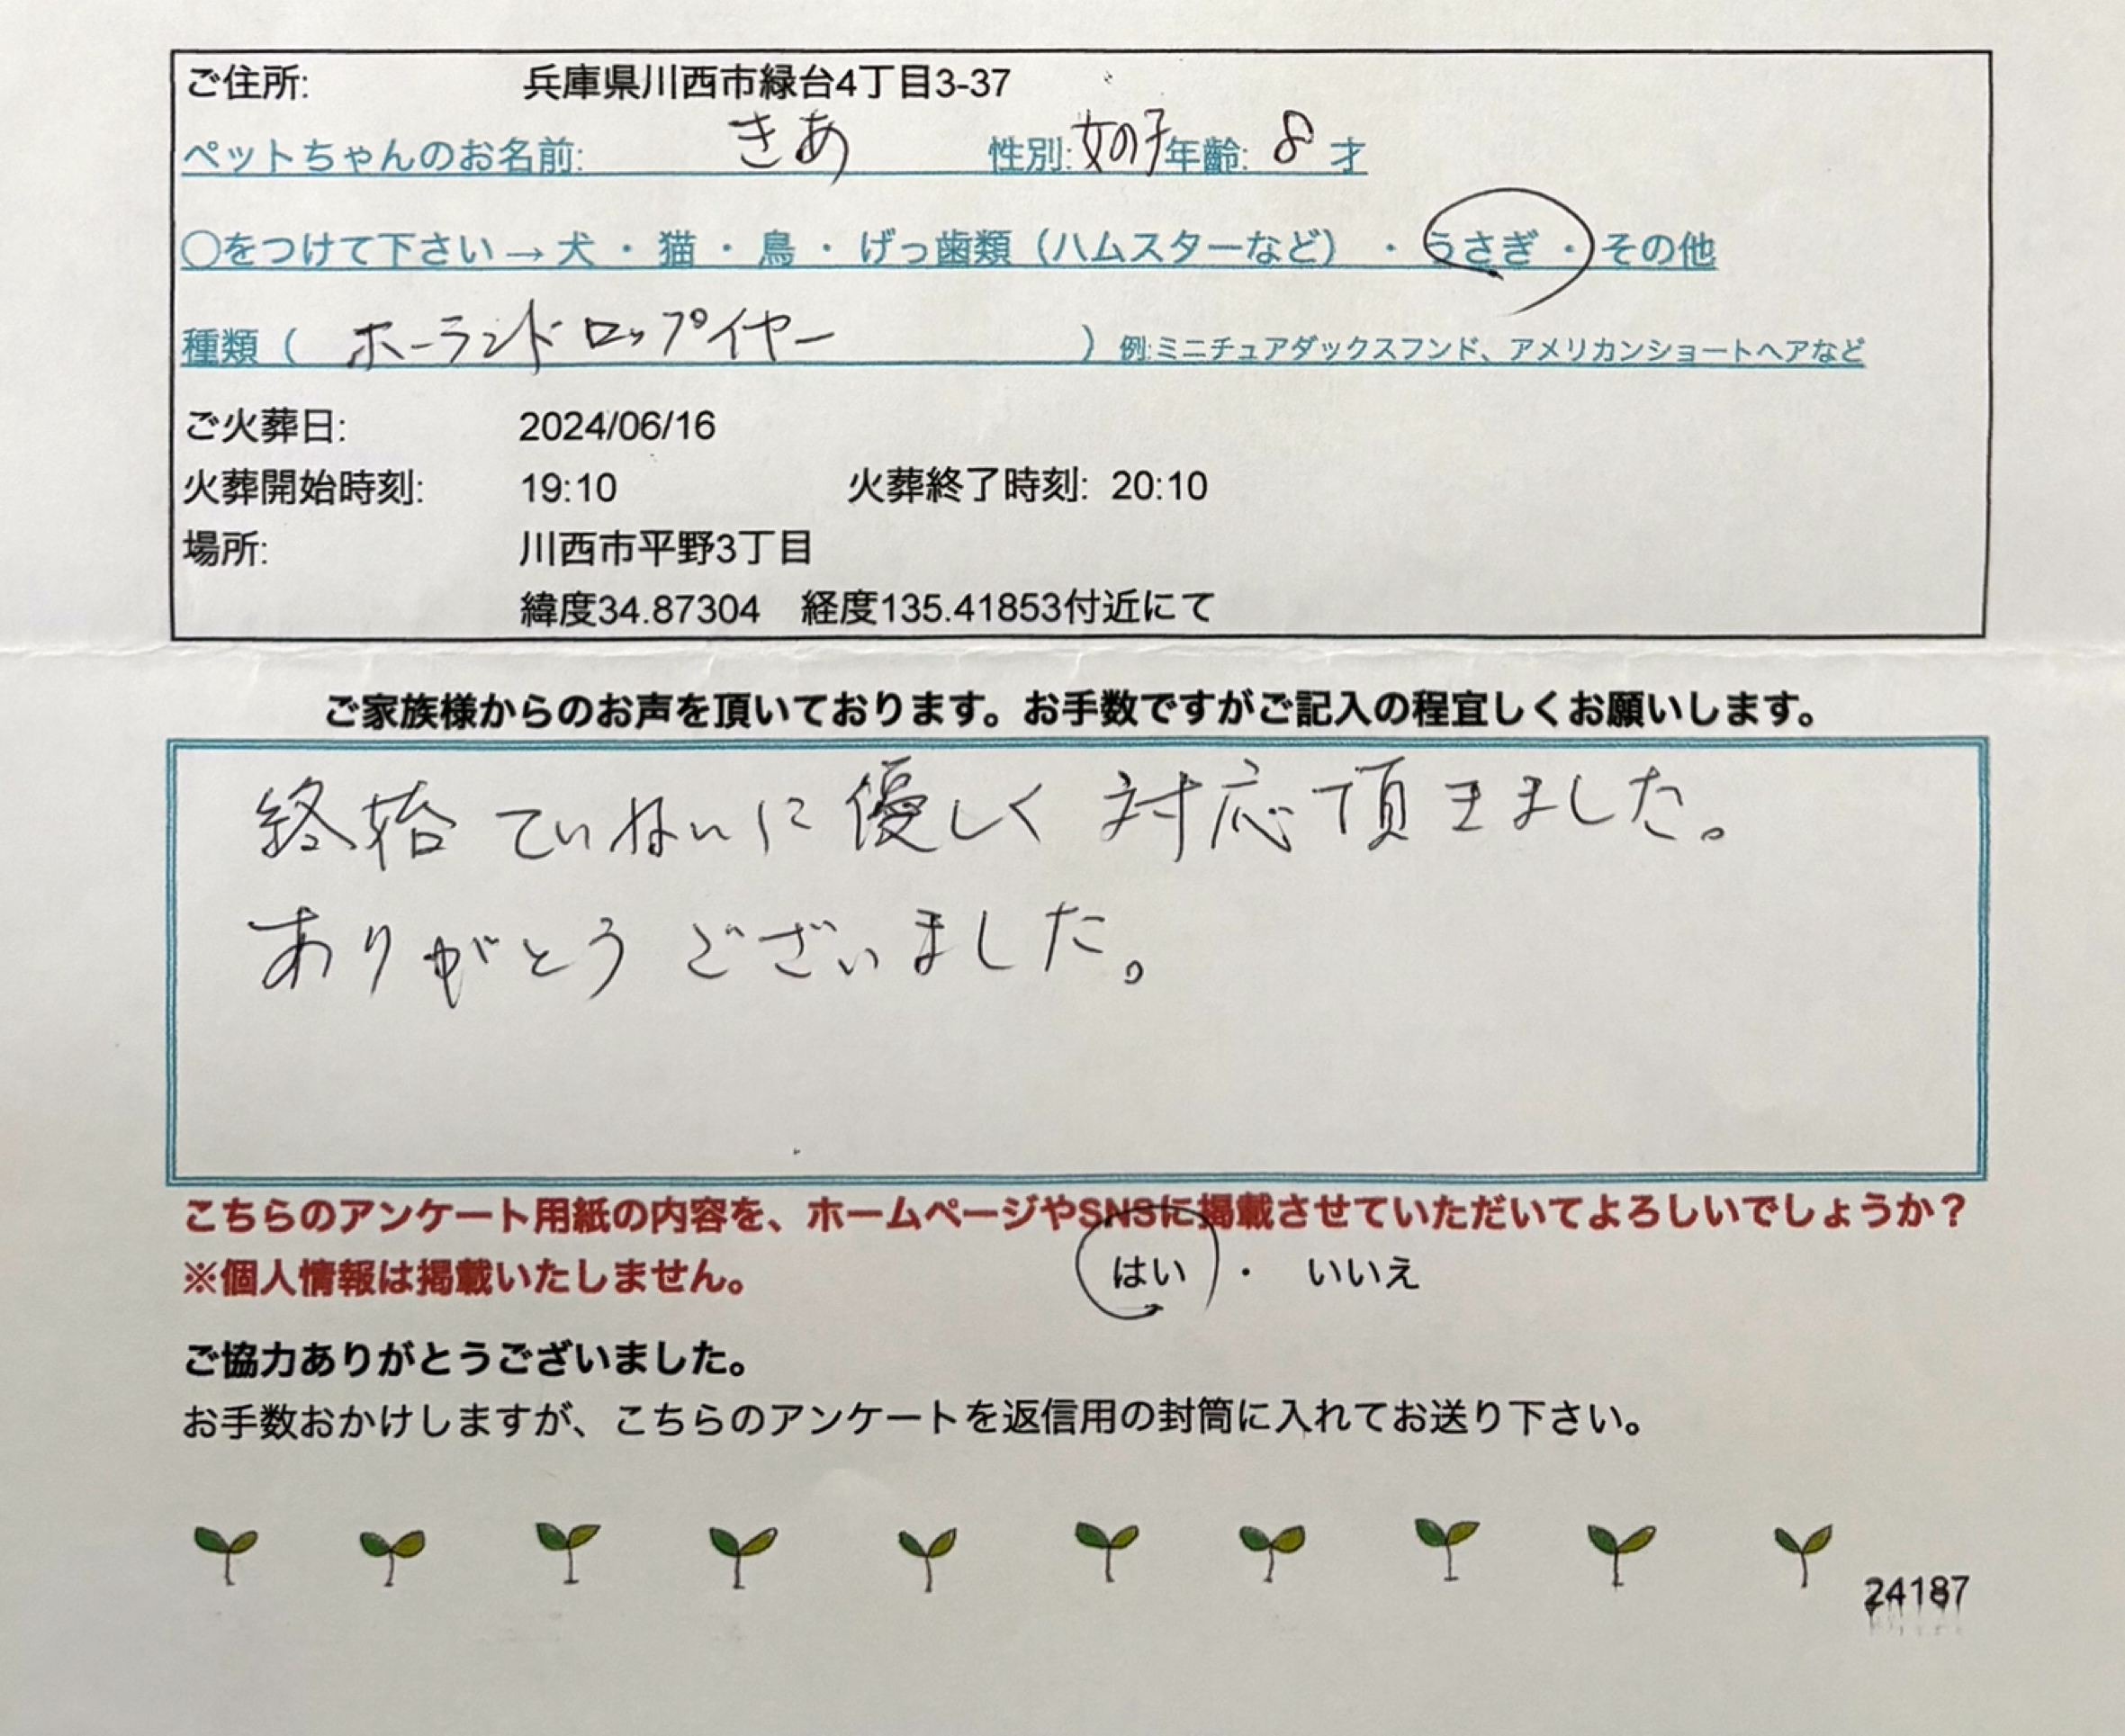 ご住所: 兵庫県川西市緑台4丁目3-37
ペットちゃんのお名前: きあ 性別: 女の子 年齢: 8 才
○をつけて下さい→犬 ・ 猫 ・ 鳥 ・ げっ歯類（ハムスターなど） ・ うさぎ ・ その他
種類（ ホーランドロップイヤー ）例:ミニチュアダックスフンド、アメリカンショートヘアなど
ご火葬日: 2024/06/16
火葬開始時刻: 19:10 火葬終了時刻: 20:10
場所: 川西市平野3丁目
緯度34.87304 経度135.41853付近にて
ご家族様からのお声を頂いております。お手数ですがご記入の程宜しくお願いします。
終始ていねいに優しく対応頂きました。
ありがとうございました。
こちらのアンケート用紙の内容を、ホームページやSNSに掲載させていただいてよろしいでしょうか？
※個人情報は掲載いたしません。 はい ・ いいえ
ご協力ありがとうございました。
お手数おかけしますが、こちらのアンケートを返信用の封筒に入れてお送り下さい。
24187